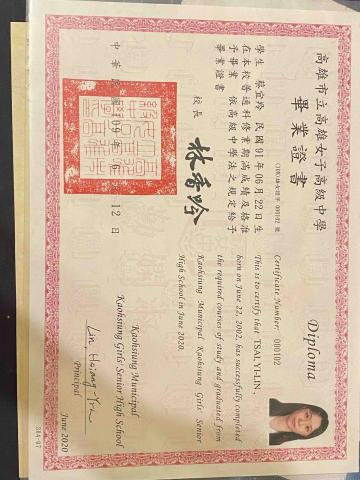 高雄市立高雄女子高級中學
畢業證書
(109)雄女證字 000102 號
學生 蔡宜玲 民國91年06月22日生
在本校普通科修業期滿成績及格准
予畢業 依高級中學法之規定給予
畢業證書
校長 林香吟
12 日
Diploma
Certificate Number: 000102
This is to certify that TSAI,YI-LIN ,
born on June 22, 2002, has successfully completed
the required courses of study and graduated from
Kaohsiung Municipal Kaohsiung Girls' Senior
High School in June 2020.
Kaohsiung Municipal
Kaohsiung Girls' Senior High School
Lin, Hsiang-Yin
Principal
June 2020
384-97